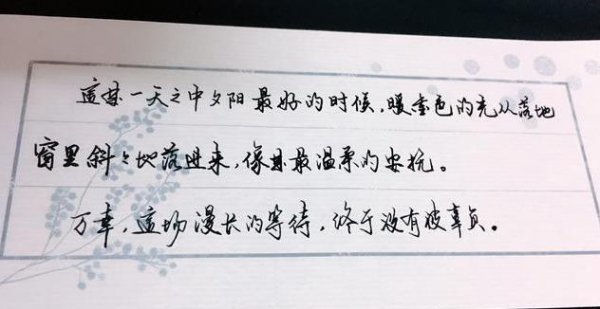 這是一天之中夕阳最好的时候，暖金色的光从落地
窗里斜々地落进来，像是最温柔的安抚。
万幸，這场漫长的等待，终于没有被辜负。